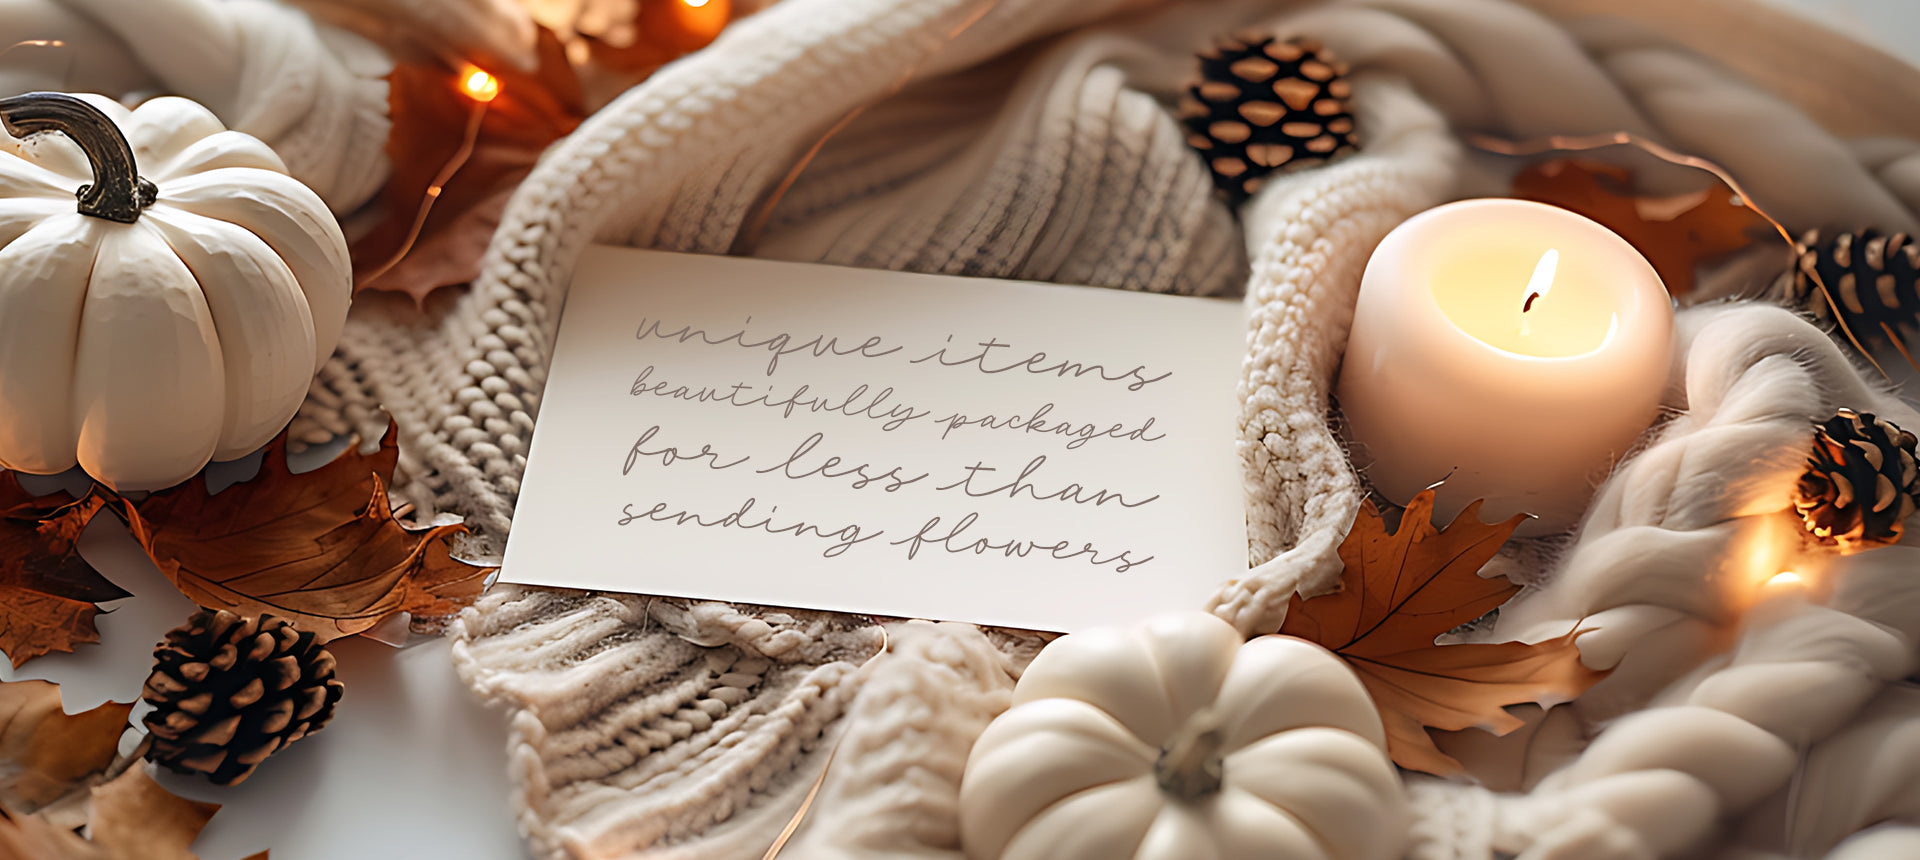 unique items
beautifully packaged
for less than
sending flowers